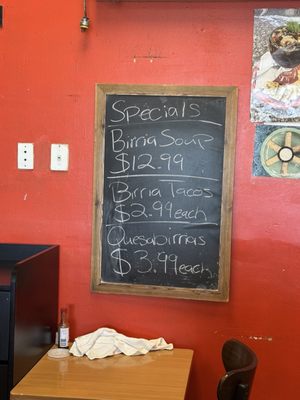 Specials
Birria Soup
$12.99
Birria Tacos
$2.99 each
Quesabirrias
$3.99 each